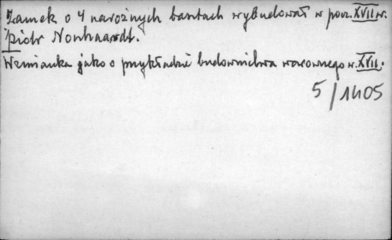 Zamek o 4 narożnych bastach wybudował w pocz. XVII w.
Piotr Nonhaardt.
Wzmianka jako o przykładzie budownictwa warownego w. XVII.
5/1405